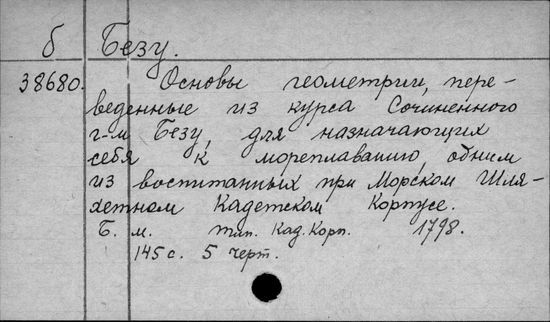 б Безу.
38680. Основы геометрии, пере-
веденные из курса Сочиненного
г-м Безу, для назначающих
себя к мореплаванию, одним
из воспитанных при Морском Шля-
хетном Кадетском Корпусе.
Б. м. тип. Кад. Корп. 1798.
145 с. 5 черт.